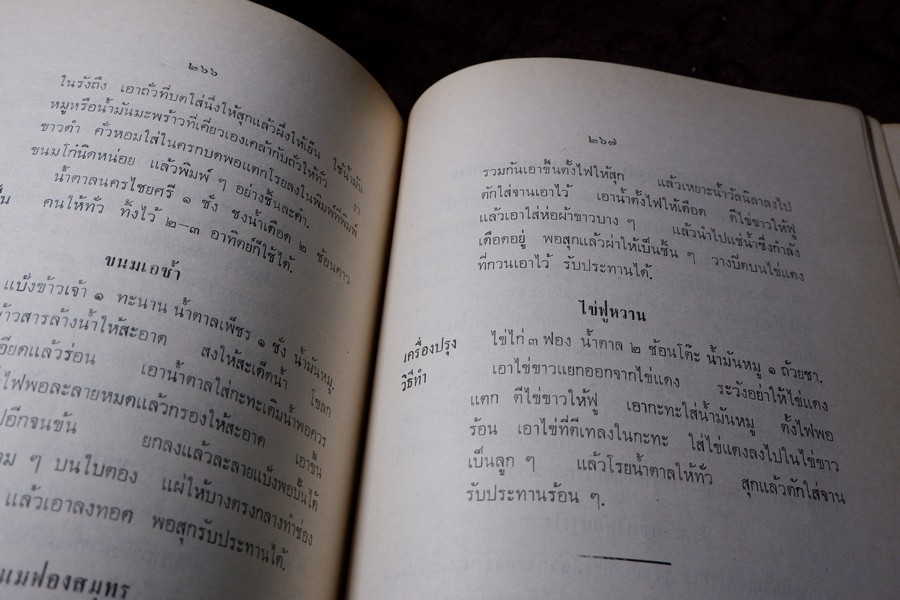 ๒๖๖
ในรังถึง เอาถั่วที่บดใส่นึ่งให้สุกแล้วผึ่งให้เย็น ใช้น้ำมัน
หมูหรือน้ำมันมะพร้าวที่เคี่ยวเองเคล้ากับถั่วให้ทั่ว งา
ขาวดำ คั่วหอมใส่ในครกบดพอแตกโรยลงในพิมพ์ที่พิมพ์
ขนมโก๋นิดหน่อย แล้วพิมพ์ ๆ อย่างชิ้นละคำ.
น้ำตาลนครไชยศรี ๑ ชั่ง ชงน้ำเดือด ๒ ช้อนคาว
คนให้ทั่ว ทิ้งไว้ ๒–๓ อาทิตย์ก็ใช้ได้.
ขนมเอซ้ำ
แป้งข้าวเจ้า ๑ ทะนาน น้ำตาลเพ็ชร ๑ ชั่ง น้ำมันหมู.
ข้าวสารล้างน้ำให้สะอาด สงให้สะเด็ดน้ำ โขลก
เอียดแล้วร่อน เอาน้ำตาลใส่กะทะเติมน้ำพอควร
ไฟพอละลายหมดแล้วกรองให้สะอาด เอาขึ้น
อีกจนข้น ยกลงแล้วละลายแป้งพอปั้นได้
ๆ บนใบตอง แผ่ให้บางตรงกลางทำช่อง
แล้วเอาลงทอด พอสุกรับประทานได้.
แมฟองสมุทร
๒๖๗
รวมกันเอาขึ้นตั้งไฟให้สุก แล้วเหยาะน้ำวัลนิลาลงไป
ตักใส่จานเอาไว้ เอาน้ำตั้งไฟให้เดือด ตีไข่ขาวให้ฟู
แล้วเอาใส่ห่อผ้าขาวบาง ๆ แล้วนำไปแช่น้ำซึ่งกำลัง
เดือดอยู่ พอสุกแล้วผ่าให้เป็นชิ้น ๆ วางปิดบนไข่แดง
ที่กวนเอาไว้ รับประทานได้.
ไข่ฟูหวาน
เครื่องปรุง ไข่ไก่ ๓ ฟอง น้ำตาล ๒ ช้อนโต๊ะ น้ำมันหมู ๑ ถ้วยชา.
วิธีทำ เอาไข่ขาวแยกออกจากไข่แดง ระวังอย่าให้ไข่แดง
แตก ตีไข่ขาวให้ฟู เอากะทะใส่น้ำมันหมู ตั้งไฟพอ
ร้อน เอาไข่ที่ตีเทลงในกะทะ ใส่ไข่แดงลงไปในไข่ขาว
เป็นลูก ๆ แล้วโรยน้ำตาลให้ทั่ว สุกแล้วตักใส่จาน
รับประทานร้อน ๆ.